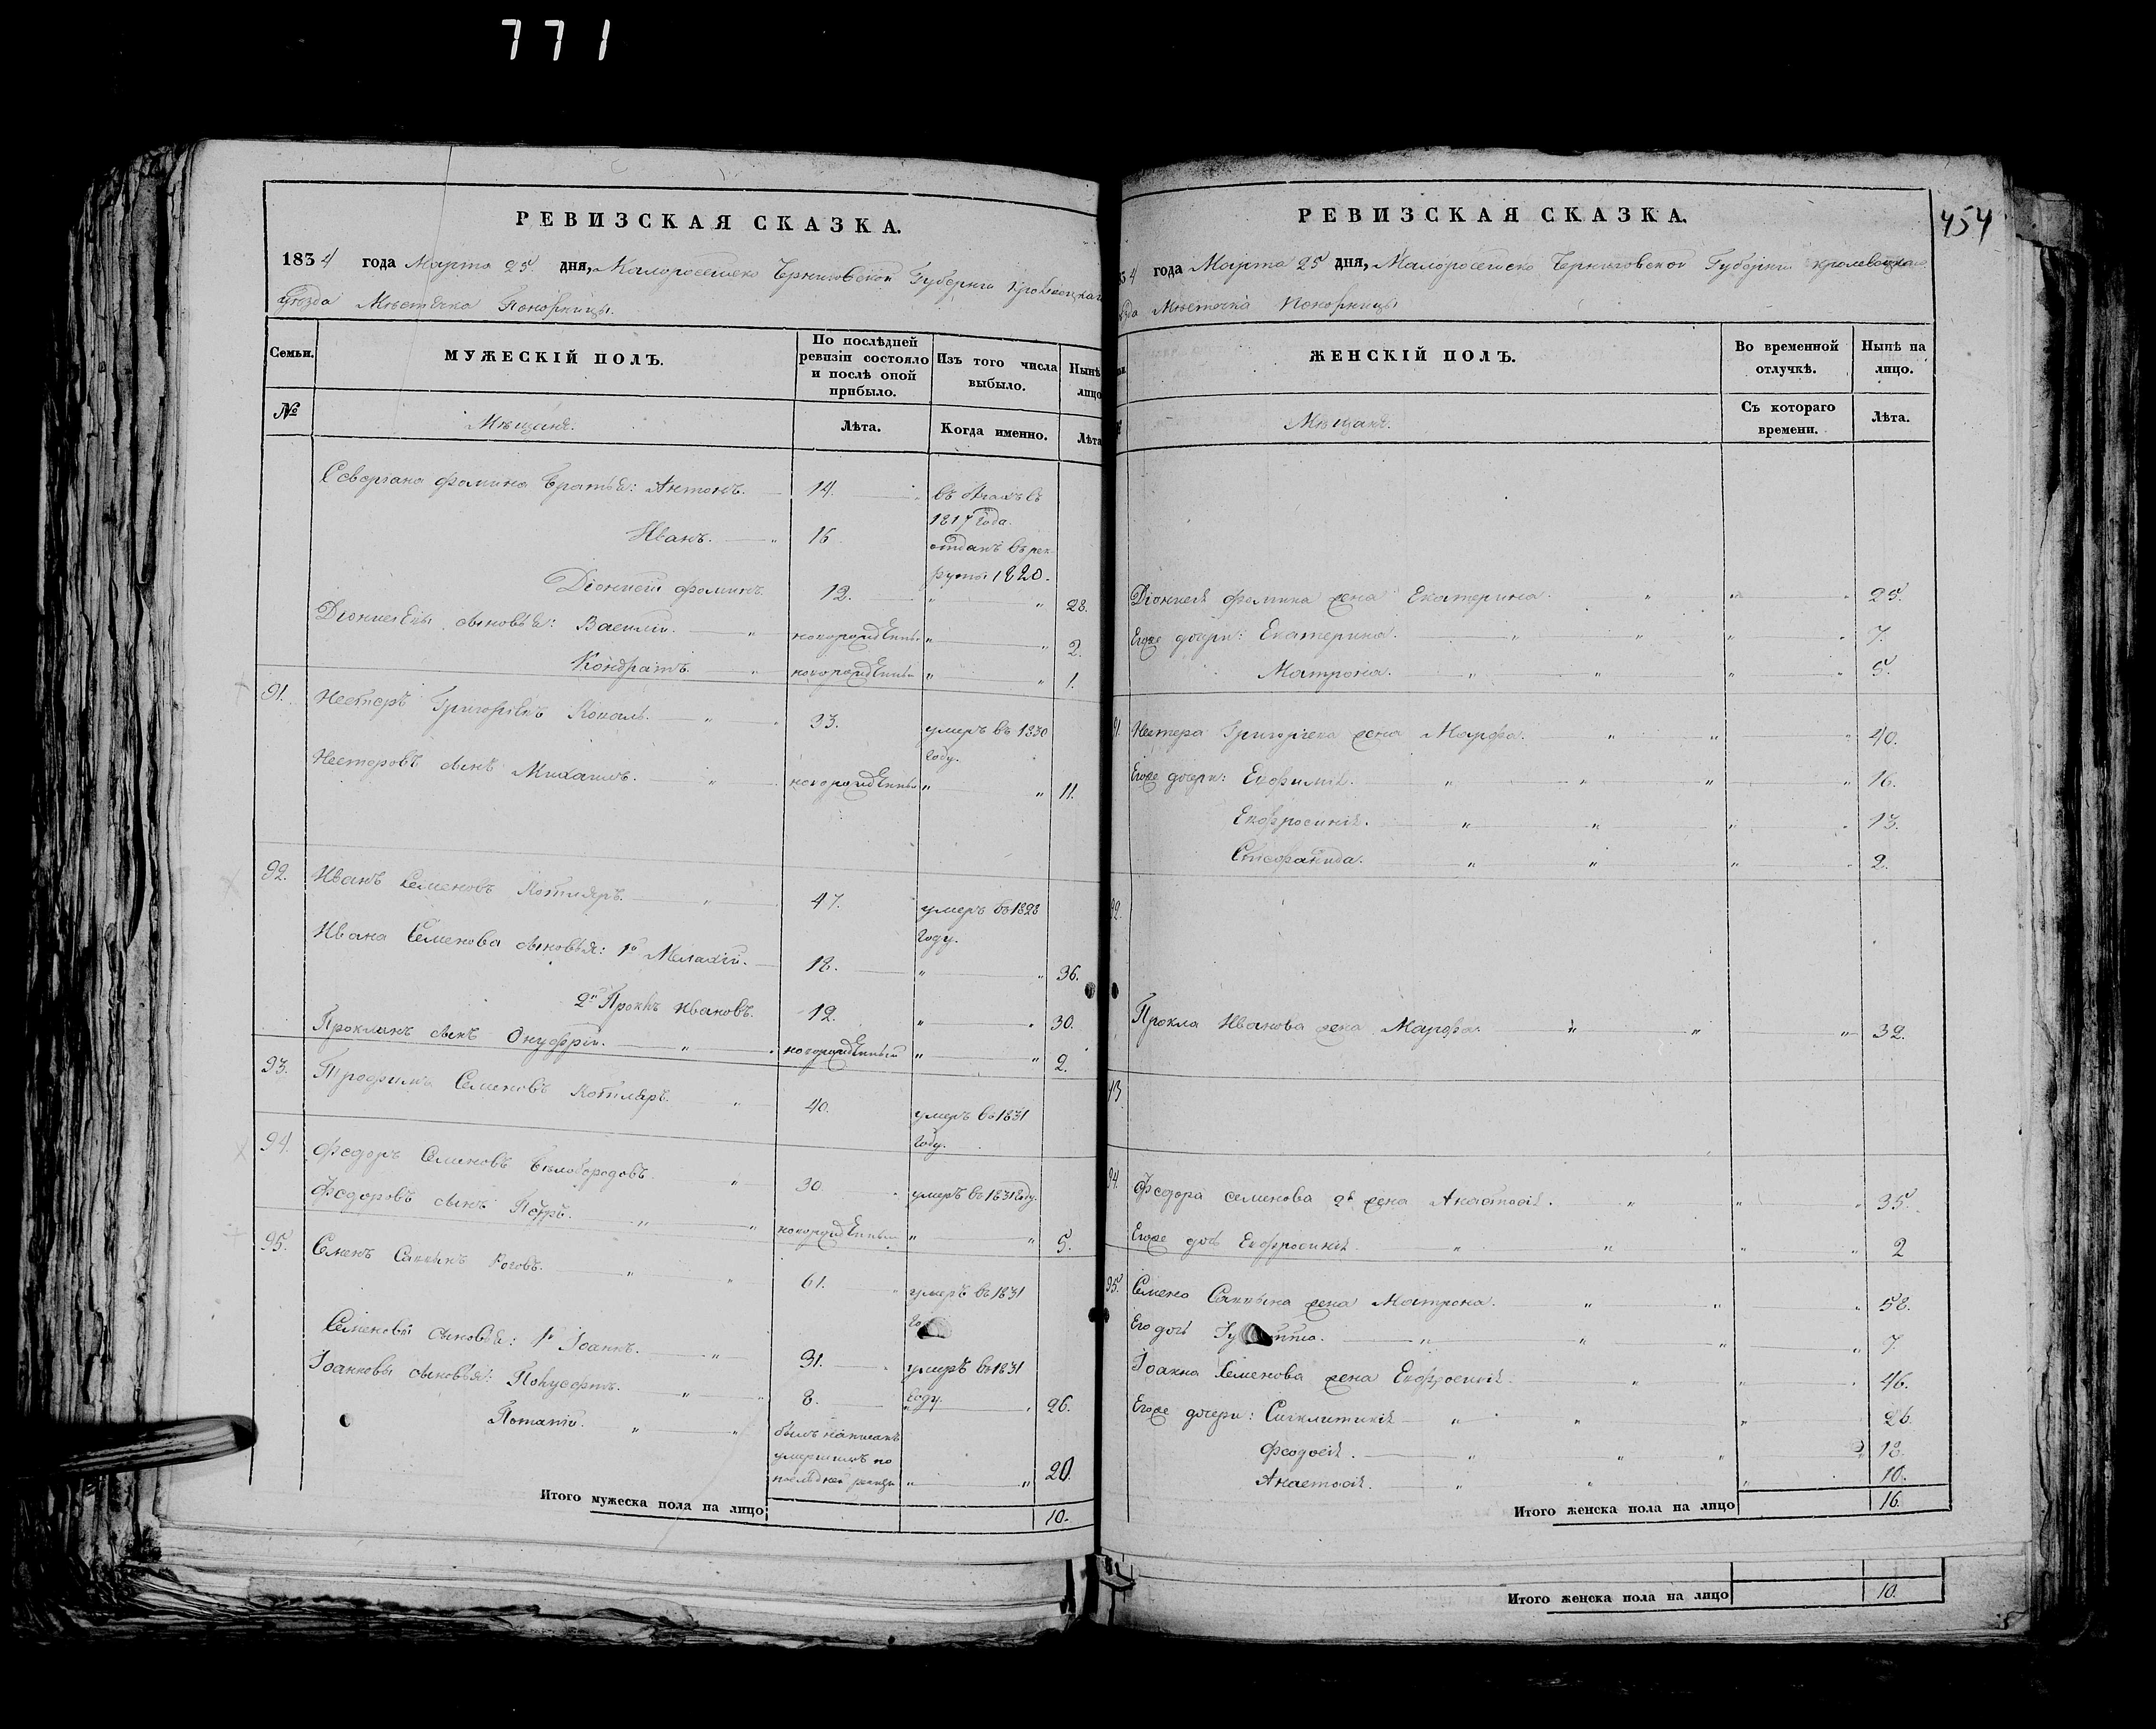 771
РЕВИЗСКАЯ СКАЗКА.
1834 года Марта 25 дня, Малоросейско Черниговской Губернии Кролевецкаго
уѣзда Мѣстечка Понорницы.
Семьи.
МУЖЕСКІЙ ПОЛЪ.
По послѣдней
ревизіи состояло
и послѣ оной
прибыло.
Изъ того числа
выбыло.
Нынѣ
лицо
№
Мѣщане.
Лѣта.
Когда именно.
Лѣта
Фомина братья: Антонъ. 14.
1817 года.
Иванъ. 16 отданъ въ рек
руты 1820.
Діонисій Фоминъ 12. 28.
сыновья: Василій. новорожденный 2.
Кондратъ. новорожденный 1.
91. Нестеръ Григоріевъ Коваль. 33. умеръ въ 1830
году.
Несторовъ сынъ Михаилъ. новорожденный 11.
92. Иванъ Семеновъ Котляръ. 47. умеръ въ 1828
году.
Ивана Семенова сыновья: 1й Мелахій. 18. 36.
2й Проклъ Ивановъ. 12. 30.
Проклинъ сынъ Онуфрій. новорожденный 2.
93. Трофимъ Семеновъ Котляръ. 40. умеръ въ 1831
году.
94. Федоръ Семеновъ Бѣлобородовъ. 30. умеръ въ 1831 году.
Федоровъ сынъ Петръ. новорожденный 5.
95. Семенъ Саввинъ Роговъ. 61. умеръ въ 1831
Семеновы сыновья: 1й Іоаннъ. 31. умеръ въ 1831
году.
Іоанновы сыновья: 8. 26.
Потапій. былъ написанъ
умершимъ по
послѣдней ревизіи 20.
Итого мужеска пола на лицо 10.
454
РЕВИЗСКАЯ СКАЗКА.
34 года Марта 25 дня, Малоросейско Черниговской Губерніи Кролевецкаго
ѣзда Мѣстечка Понорницы
ЖЕНСКІЙ ПОЛЪ.
Во временной
отлучкѣ.
Нынѣ на
лицо.
Мѣщане.
Съ котораго
времени.
Лѣта.
Діонисія Фомина жена Екатерина. 25.
Егоже дочери: Екатерина. 7.
Матрона. 5.
91. Нестера Григоріева жена Марфа. 40.
Егоже дочери: Евфимія. 16.
Евфросинія. 13.
Стефанида. 2.
92.
Прокла Иванова жена Марфа. 32.
93
94. Федора Семенова 2я жена Анастасія. 35.
Егоже дочь Евфросинія. 2
95. Семена Саввина жена Матрона. 58.
Его дочь 7.
Іоанна Семенова жена Евфросинія. 46.
Егоже дочери: Синклитикія 26.
Феодосія. 18.
Анастасія. 10.
Итого женска пола на лицо 16.
Итого женска пола на лицо 10.